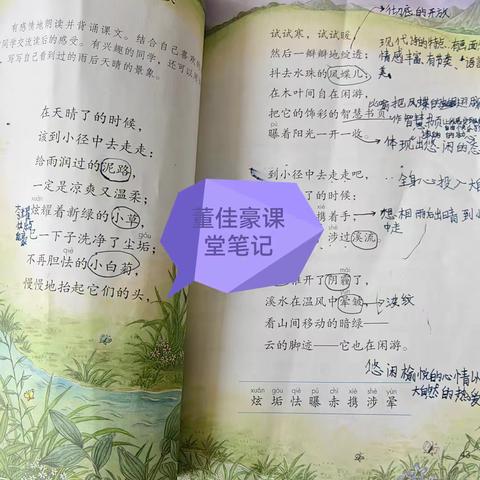 有感情地朗读并背诵课文。结合自己喜欢的
同学交流读后的感受。有兴趣的同学，还可以
写写自己看到过的雨后天晴的景象。
在天晴了的时候，
该到小径中去走走：
给雨润过的泥路，
一定是凉爽又温柔；
炫耀着新绿的小草，
已一下子洗净了尘垢；
不再胆怯的小白菊，
慢慢地抬起它们的头，
试试寒，试试暖，
然后一瓣瓣地绽透；
抖去水珠的凤蝶儿，
在木叶间自在闲游，
把它的饰彩的智慧书页
曝着阳光一开一收。
到小径中去走走吧，
了的时候：
携着手，
涉过溪流。
开了阴霾了，
溪水在温风中晕皱，
看山间移动的暗绿——
云的脚迹——它也在闲游。
xuàn gòu qiè pù chì xié shè yùn
炫 垢 怯 曝 赤 携 涉 晕
彻底的开放
现代诗的特点
情感丰富
把凤蝶的翅膀
体现出悠闲的
全身心投入大
想相雨后出晴到小
中走
波纹
悠闲愉悦的心情
大自然的热爱
董佳豪课
堂笔记